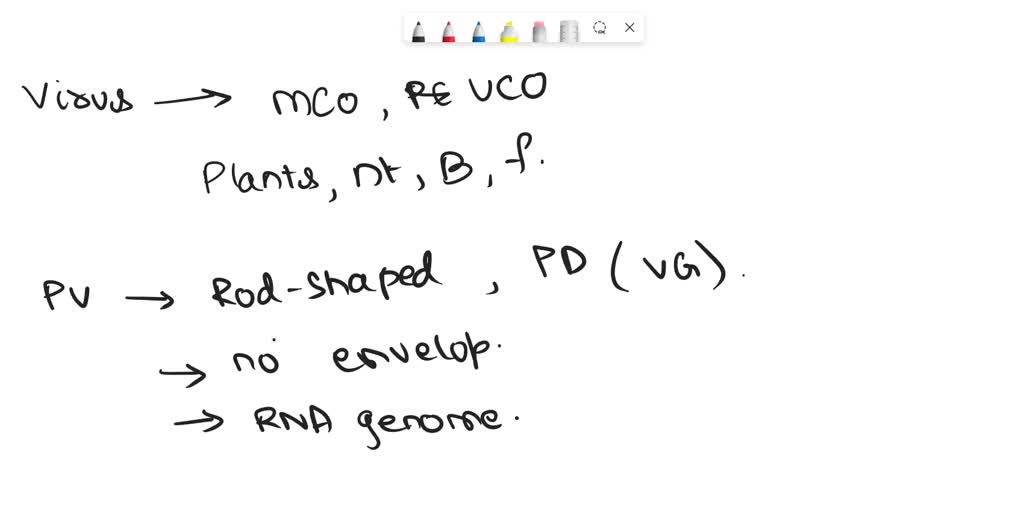 Virus → MCO, UCO
Plants, nt, B, f.
PV → Rod-shaped, PD (VG).
→ no envelop.
→ RNA genome.